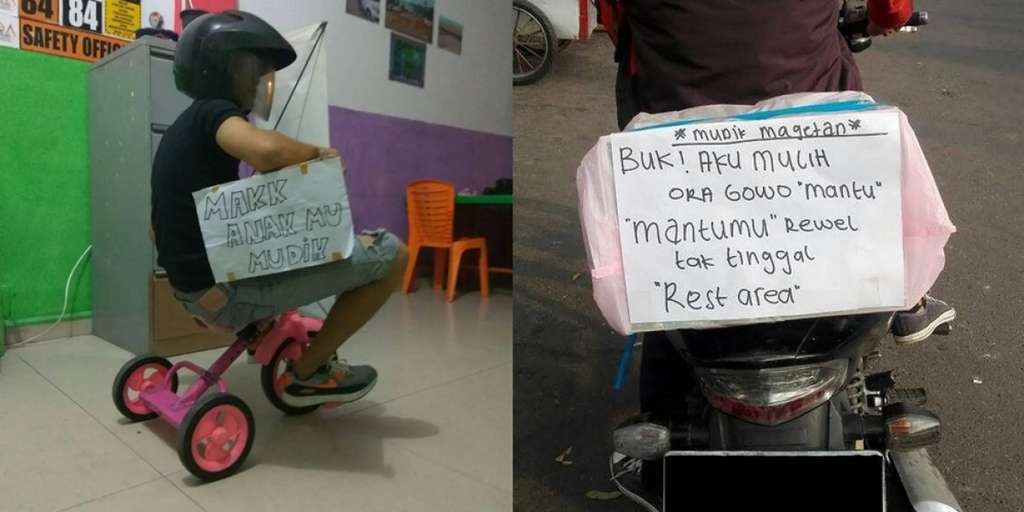 84 84
SAFETY OFFICE
MAKK
ANAK MU
MUDIK
*MUDIK MAGETAN*
BUK! AKU MULIH
ORA GOWO "MANTU"
"MANTUMU" REWEL
tak tinggal
"Rest area"